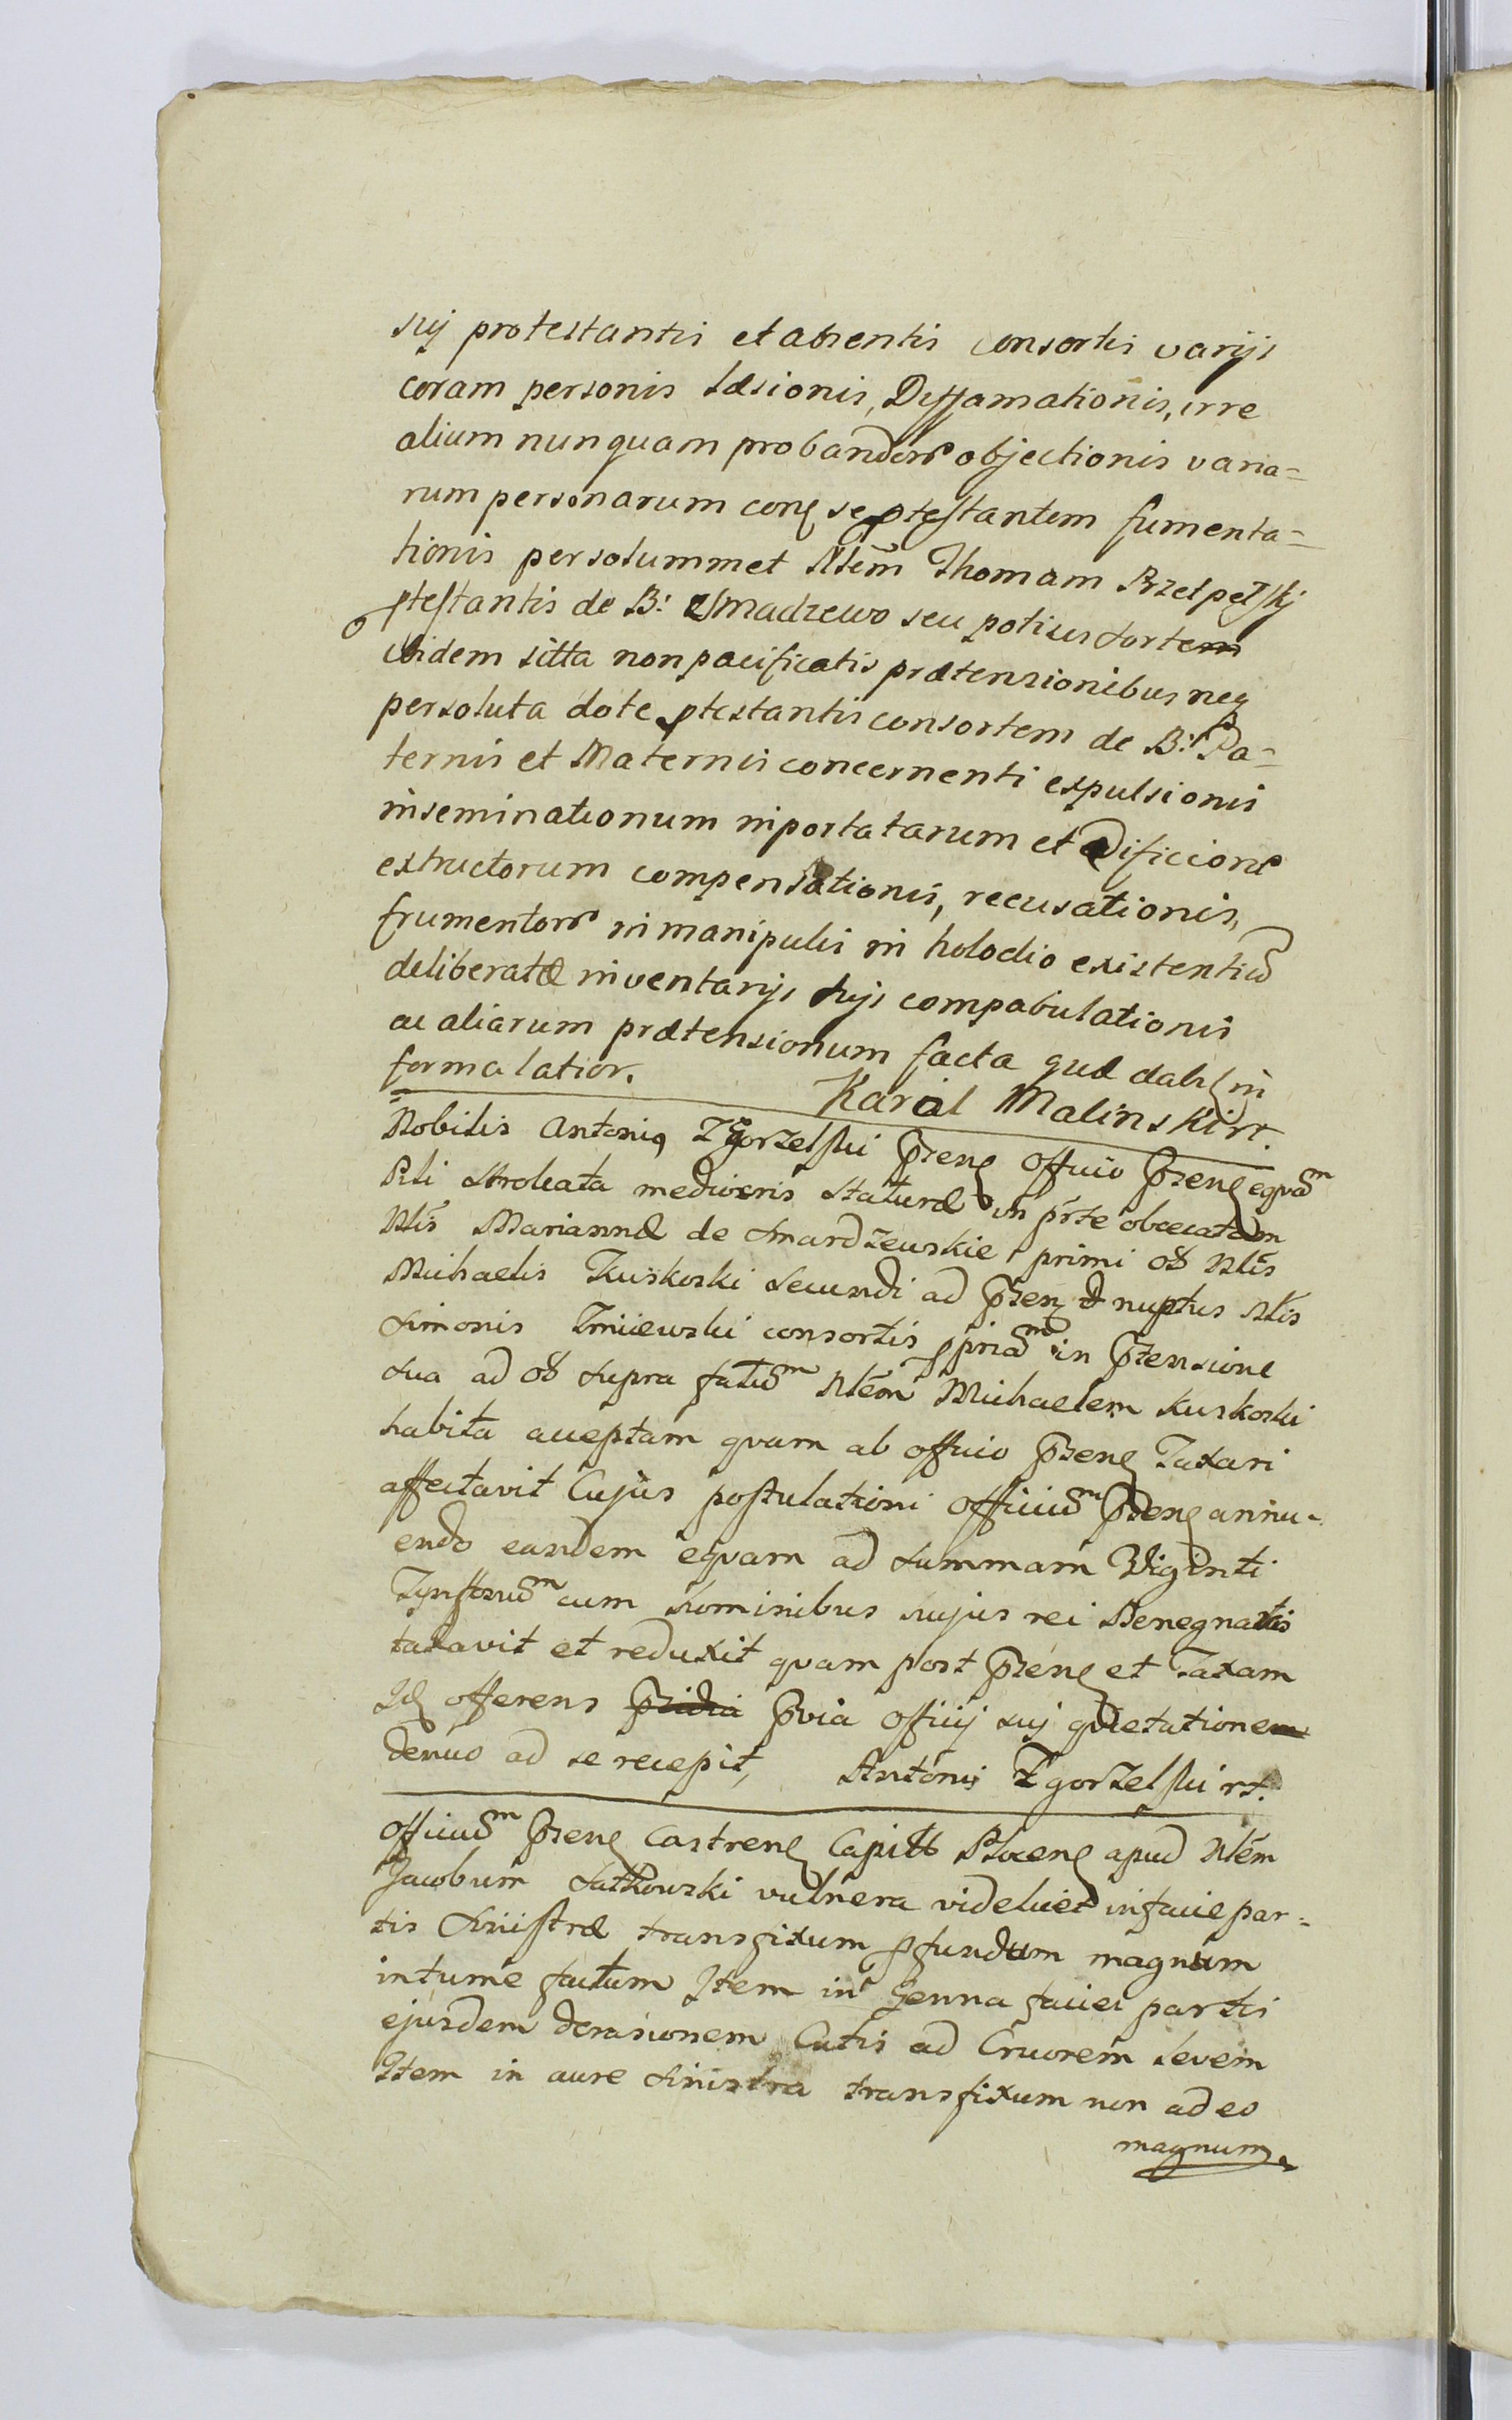 suj protestantis et absentis consortis varijs
coram personis læsionis, Diffamationis, irre
alium nunquam probandor objectionis varia=
rum personarum conq se ptestantem fumenta=
tionis per solummet Nlem Thomam Przełpełskj
ptestantis de B: Smadzewo seu potius sortem
ibidem sitta non pacificatis prætensionibus neq
persoluta dote ptestantis consortem de B: Pa=
ternis et Maternis concernenti expulsionis
inseminationum inportatarum et ædificiorum
extructorum compensationis, recusationis,
frumentorum in manipulis in holodio existentium
deliberatæ inventarijs sujs compabulationis
ac aliarum prætensionum facta quæ dabq in
forma latior. Karol Malinski rt.
Nobilis Antoniq Zgorzelski Przenq Officio Przenq equam
Pili Srokata mediocris Staturæ in prte obcecatam
Nlis Mariannæ de Smardzewskie primi olb Nlis
Michaelis Kuskoski Secundi ad Przenq nuptus Nlis
Simonis Zmiiewski consortis ppriam in Przensione
Sua ad olb Supra fatum Nlem Michaelem Kuskoski
habita acceptam quam ab officio Przenq Taxari
affectavit Cujus postulationi Officium Przenq annu-
endo eandem equam ad Summam Viginti
Tynforum cum hominibus hujus rei Benegnatis
taxavit et reduxit quam post Przenq et Taxam
Idq offerens przidia Pvia Officij suj quietatione
denuo ad se recepit, Antoni Zgorzelski rt.
Officium Przenq Castrenq Capitt Plocenq apud Nlem
Jacobum Sutkowski vulnera videlicet in facie par=
tis Sinistræ transfixum pfundum magnum
intume factum Item in Genna faciei partis
ejusdem derasionem Cutis ad Cruorem Levem
Item in aure Sinistra transfixum non adeo
magnum